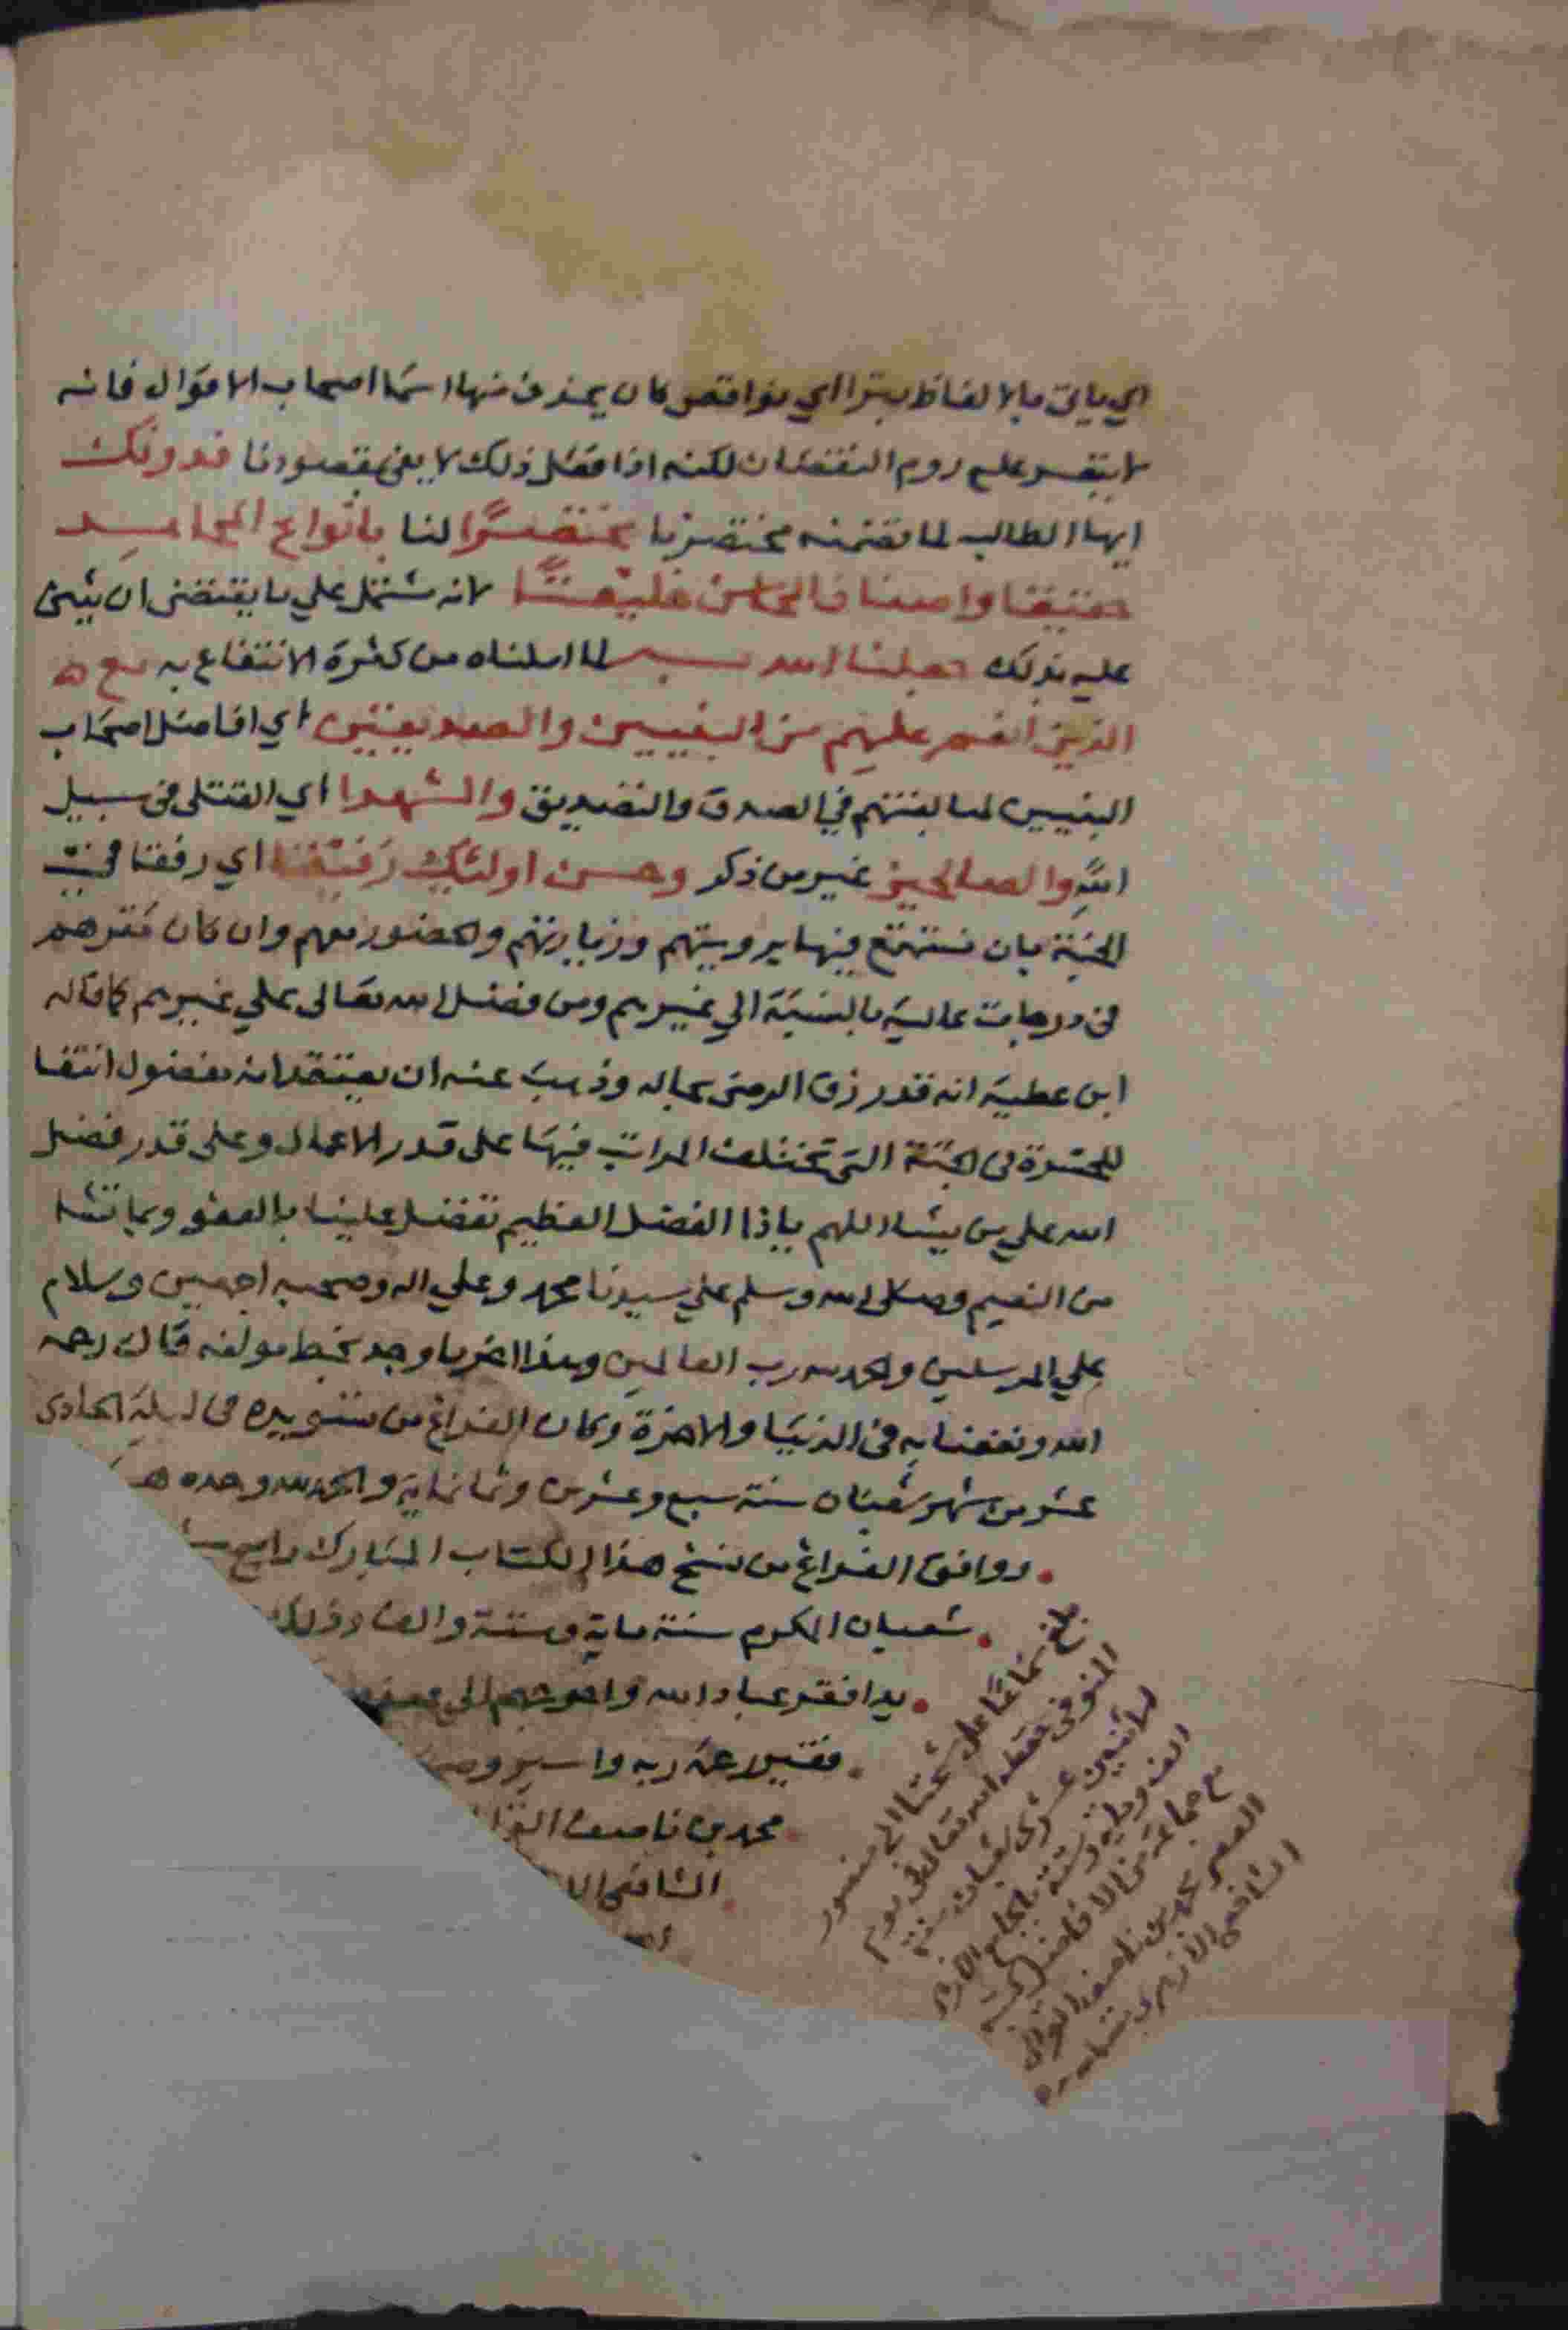 اي ياتى بالالفاظ بترا اي نواقص كان يحذف منها اسما اصحاب الاقوال فانه
لا يتعسر عليه روم النقصان لكنه اذا فعل ذلك لا يفى بمقصودنا فدونك
ايها الطالب لما تضمنه مختصرنا مختصرًا لنا بانواع المحامد
حقيقا واصناف المحاسن خليقًا لانه مشتمل علي ما يقتضى ان يثنى
عليه بذلك جعلنا الله لما املناه من كثرة الانتفاع به مع
الذين انعم عليهم من النبيين والصديقين اي افاضل اصحاب
النبيين لمبالغتهم في الصدق والتصديق والشهدا اي القتلى فى سبيل
الله والصالحين غير من ذكر وحسن اولئك رفيقا اي رفقا فى
الجنة بان نستمتع فيها برويتهم وزيارتهم والحضور معهم وان كان مقرهم
فى درجات عالية بالنسبة الي غيرهم ومن فضل الله تعالى علي غيرهم كما قاله
ابن عطية انه قد رزق الرضى بحاله وذهب عنه ان يعتقد انه مفضول انتفا
للحسرة فى الجنة التى تختلف المراتب فيها على قدر الاعمال وعلى قدر فضل
الله علي من يشاء اللهم ياذا الفضل العظيم تفضل علينا بالعفو وبما تشا
من النعيم وصلى الله وسلم علي سيدنا محمد وعلي اله وصحبه اجمعين وسلام
علي المرسلين والحمد لله رب العالمين وهذا اخر ما وجد بخط مولفه قال رحمه
الله ونفعنا به فى الدنيا والاخرة وكان الفراغ من تسويده فى ليلة الحادى
عشر من شهر شعبان سنة سبع وعشرين وثمانماية والحمد لله وحده
ووافق الفراغ من نسخ هذا الكتاب المبارك رابع
شعبان المكرم سنة ماية وستة والف وذلك
يد افقر عباد الله واحوجهم الى
فقير رحمة ربه واسير
محمد بن ناصف
الشافعى
بلغ سماعا على شيخنا الشيخ منصور
المنوفى حفظه الله تعالى فى يوم
الاثنين عشرى شعبان سنة
الف وماية وستة بالجامع الازهر
مع جماعة من الافاضل
الفقير محمد بن ناصف
الشافعى الازهرى